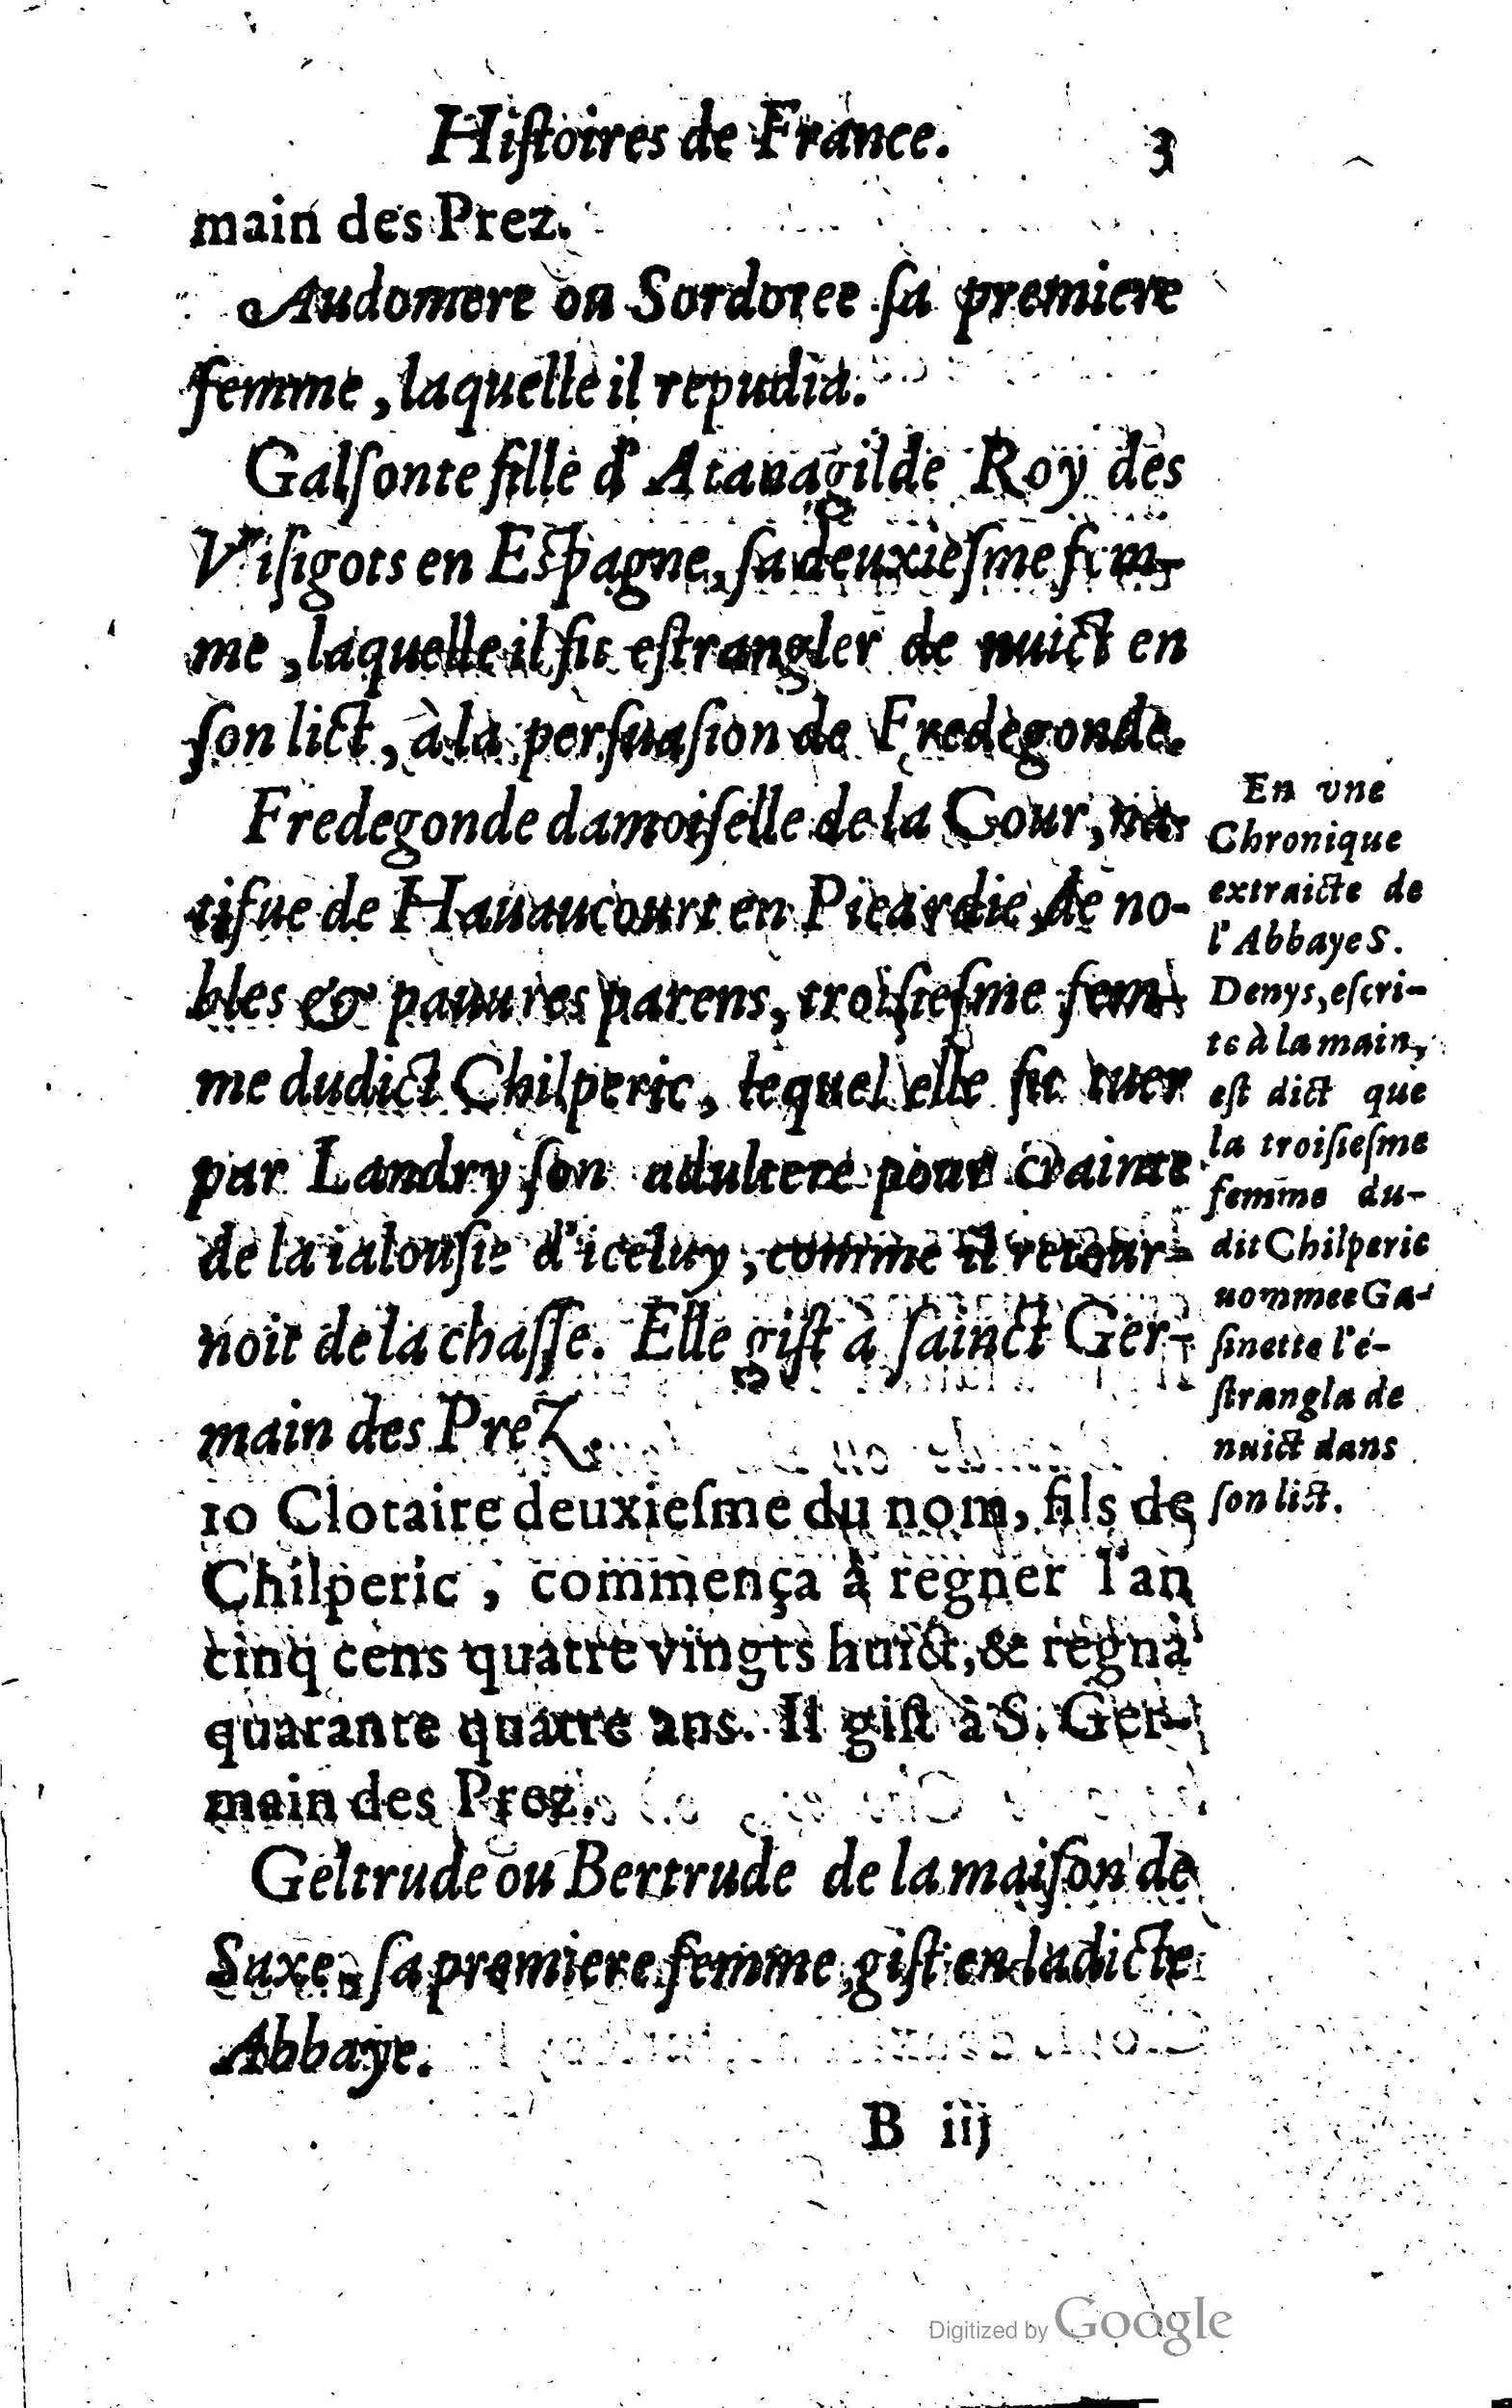 Hiſtoires de France. 3
main des Prez.
Audomere ou Sordoree ſa premiere
femme, laquelle il repudia.
Galſonte fille d'Atanagilde Roy des
Viſigots en Eſpagne, ſa deuxieſme fem-
me, laquelle il fit eſtrangler de nuict en
ſon lict, à la perſuaſion de Fredegonde.
Fredegonde damoiſelle de la Cour, na-
tifue de Hauaucourt en Picardie, de no-
bles & pauures parens, troiſieſme fem-
me dudict Chilperic, lequel elle fit tuer
par Landry ſon adultere pour crainte
de la ialouſie d'iceluy, comme il retour-
noit de la chaſſe. Elle giſt à ſainct Ger-
main des Prez.
En vne
Chronique
extraicte de
l'Abbaye S.
Denys, eſcri-
te à la main,
eſt dict que
la troiſieſme
femme du-
dit Chilperic
nommee Ga-
ſinette l'é-
ſtrangla de
nuict dans
ſon lict.
10 Clotaire deuxieſme du nom, fils de
Chilperic, commença à regner l'an
cinq cens quatre vingts huict, & regna
quarante quatre ans. Il giſt à S. Ger-
main des Prez.
Geltrude ou Bertrude de la maiſon de
Saxe, ſa premiere femme, giſt en ladicte
Abbaye.
B iij
Digitized by Google